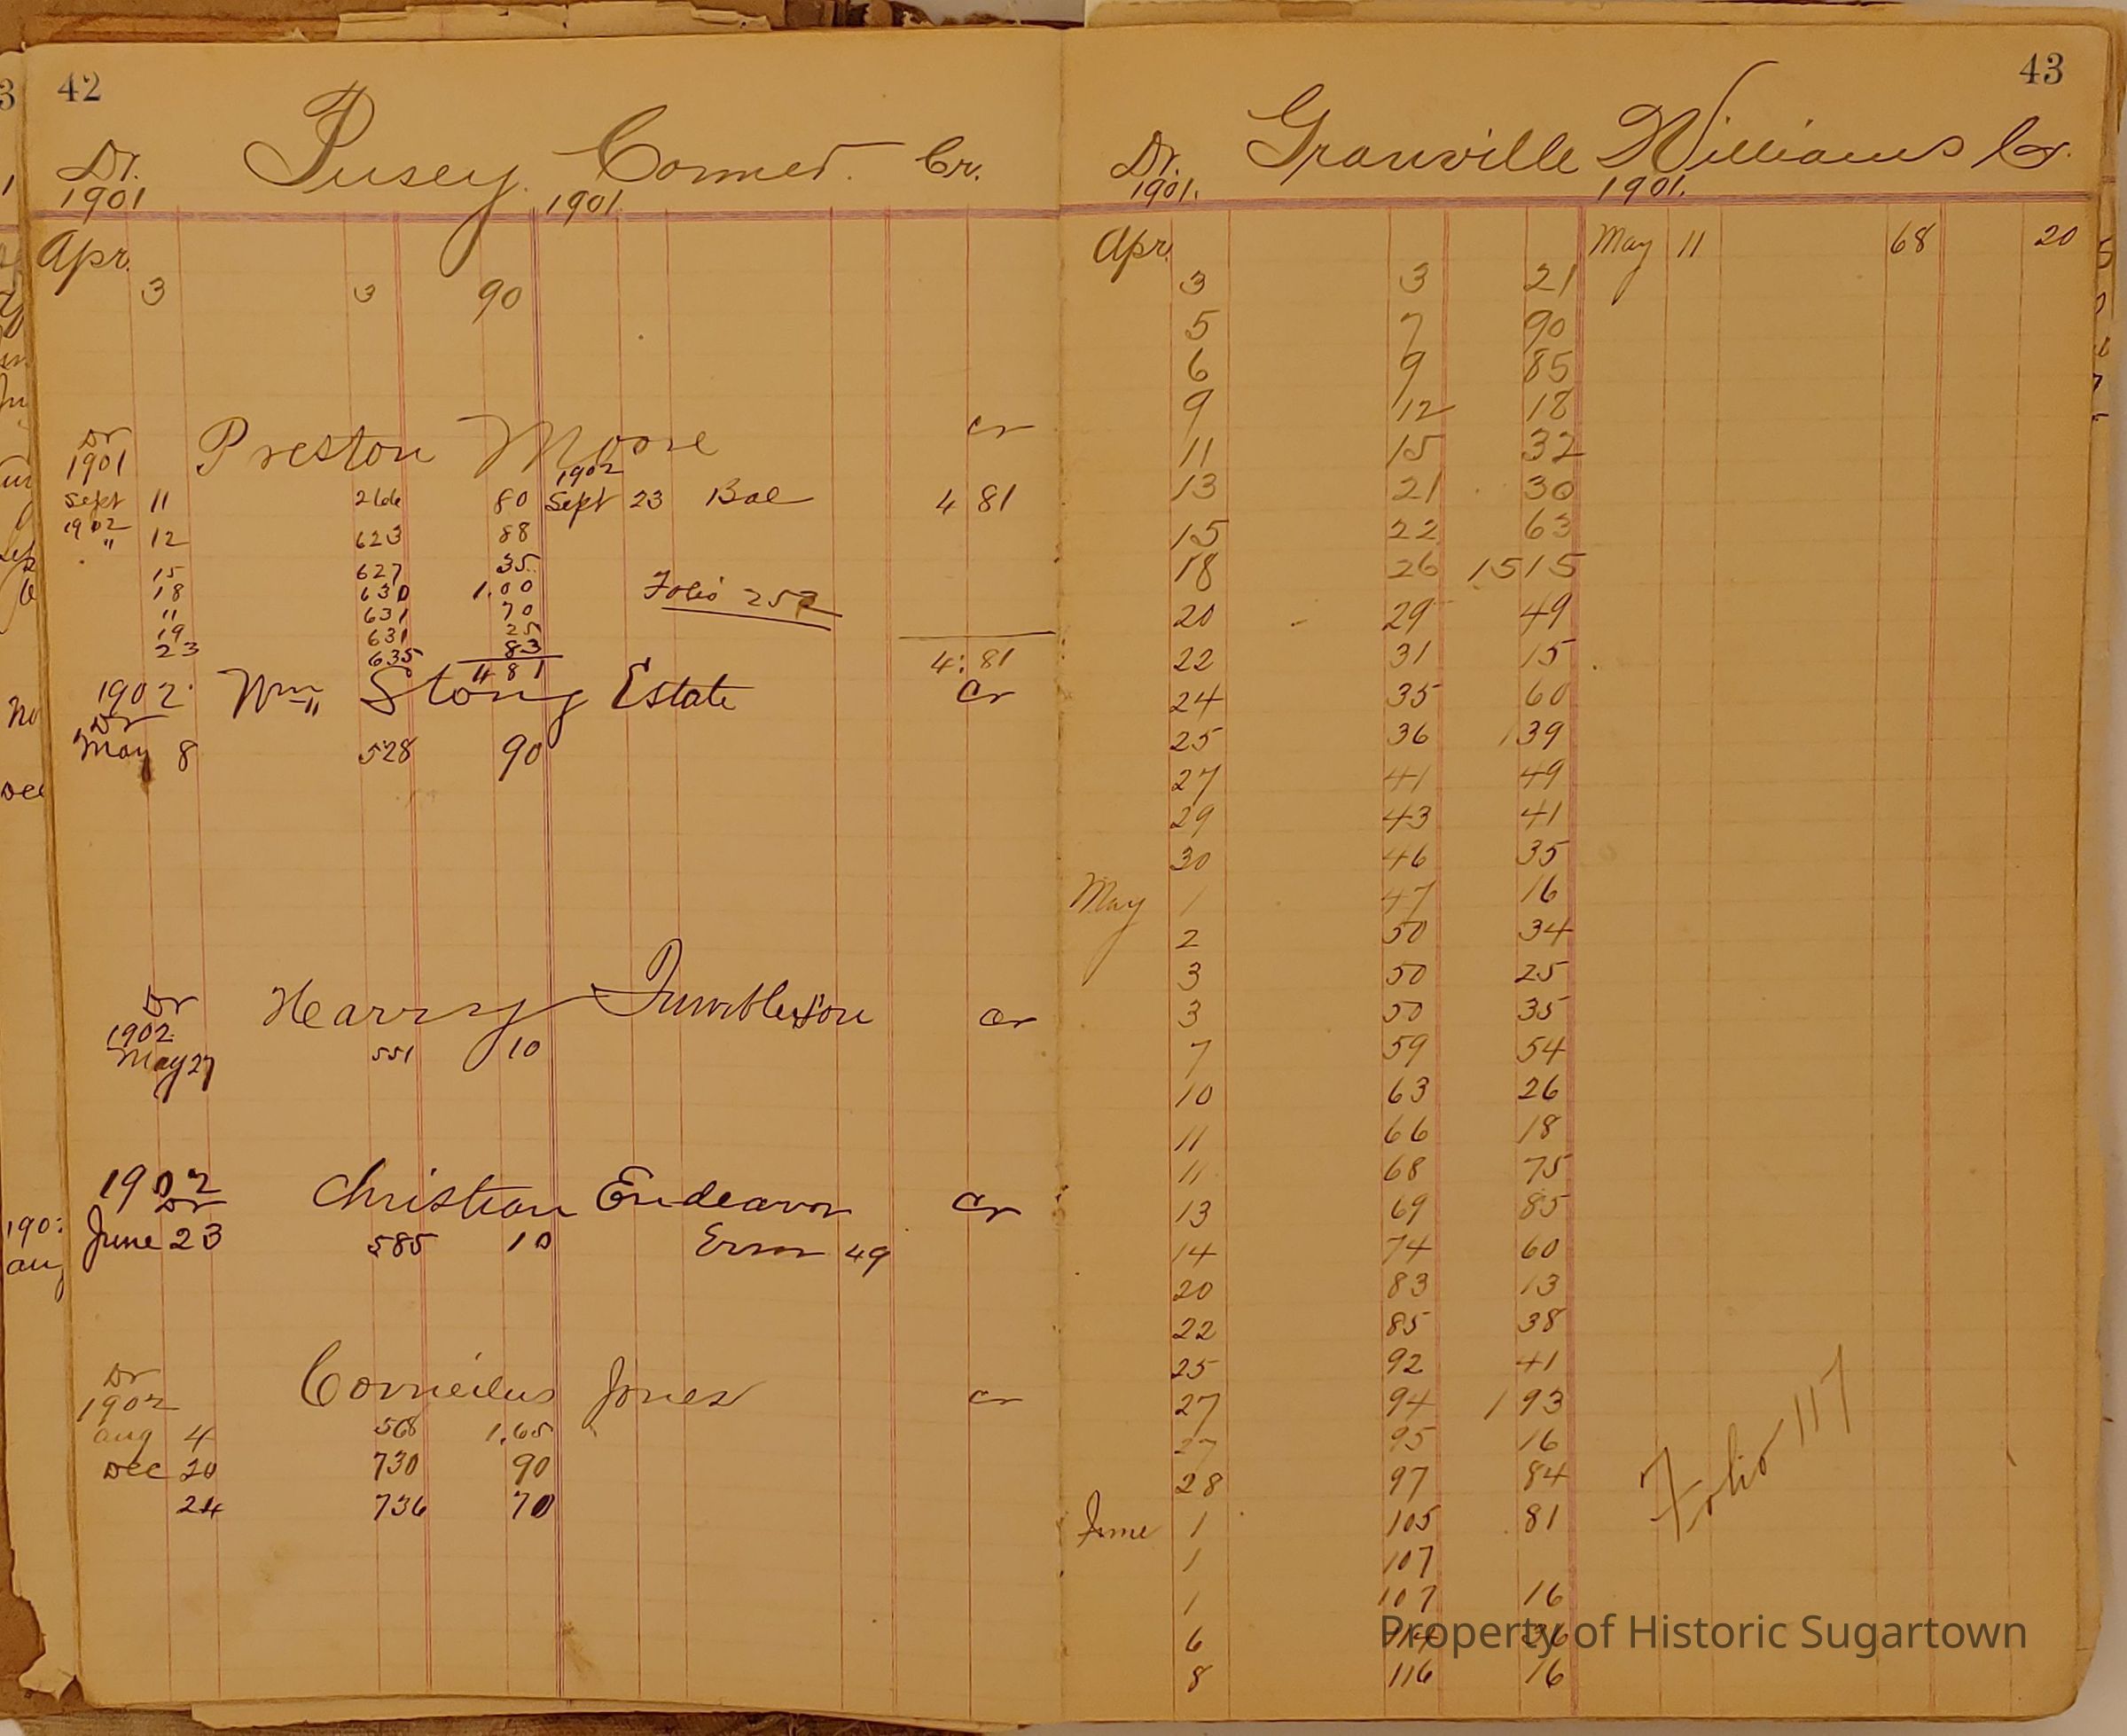 42
Dr. Pusey Conned. Cr.
1901 1901
Apr.
3 3 90
Dr Preston Moore cr
1901 1902
Sept 11 266 80 Sept 23 Bal 4 81
1902
" 12 623 88
15 627 35
18 630 1.00 Folio 257
" 631 70
19 631 25
23 635 83
4 81 4.81
1902 Wm Stong Estate Cr
Dr
May 8 528 90
Dr Harry cr
1902
May 27 551 10
1902 Christian Endeavor Cr
Dr
June 23 585 10 49
Dr Cornielus Jones cr
1902
Aug 4 568 1.65
Dec 20 730 90
24 736 70
43
Dr. Granville Williams Cr.
1901. 1901.
Apr. May 11 68 20
3 3 21
5 7 90
6 9 85
9 12 18
11 15 32
13 21 30
15 22 63
18 26 15 15
20 29 49
22 31 15
24 35 60
25 36 1 39
27 41 49
29 43 41
30 46 35
May 1 47 16
2 50 34
3 50 25
3 50 35
7 59 54
10 63 26
11 66 18
11 68 75
13 69 85
14 74 60
20 83 13
22 85 38
25 92 41
27 94 1 93
27 95 16
28 97 84
Folio 117
June 1 105 81
1 107
1 107 16
6 114 36
8 116 16
Property of Historic Sugartown